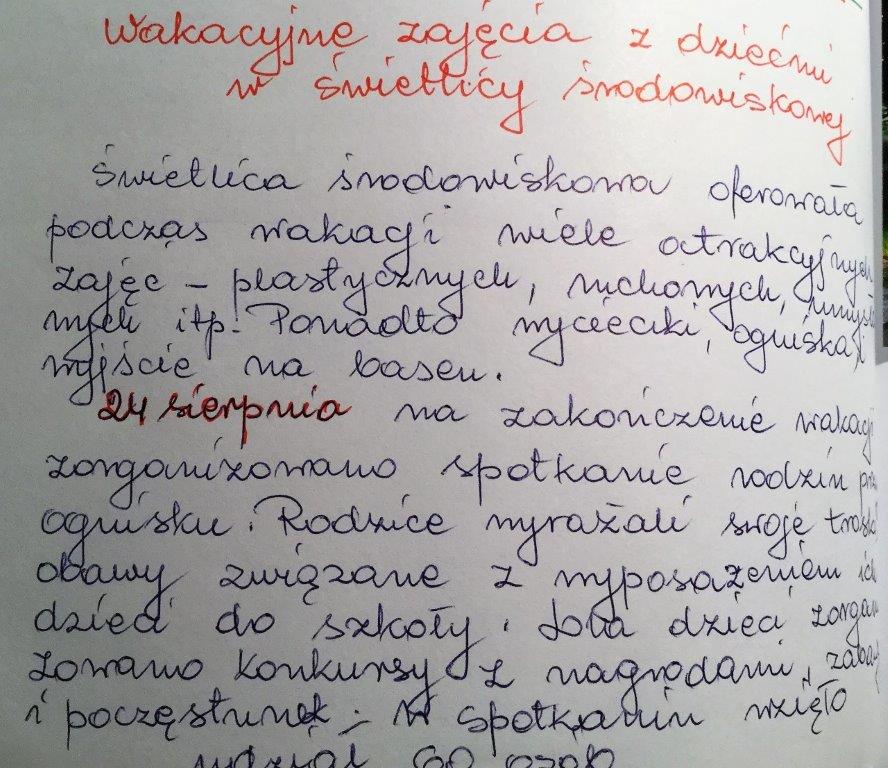 Wakacyjne zajęcia z dziećmi
w świetlicy środowiskowej
Świetlica środowiskowa oferowała
podczas wakacji wiele atrakcyjnych
zajęć – plastycznych, ruchowych,
itp. Ponadto wycieczki, ogniska,
wyjście na basen.
24 sierpnia na zakończenie wakacji
zorganizowano spotkanie rodzin
ognisku. Rodzice wyrażali swoje
obawy związane z wyposażeniem ich
dzieci do szkoły. Dla dzieci
zowano konkursy z nagrodami,
i poczęstunek. W spotkaniu wzięło
udział 60 osób